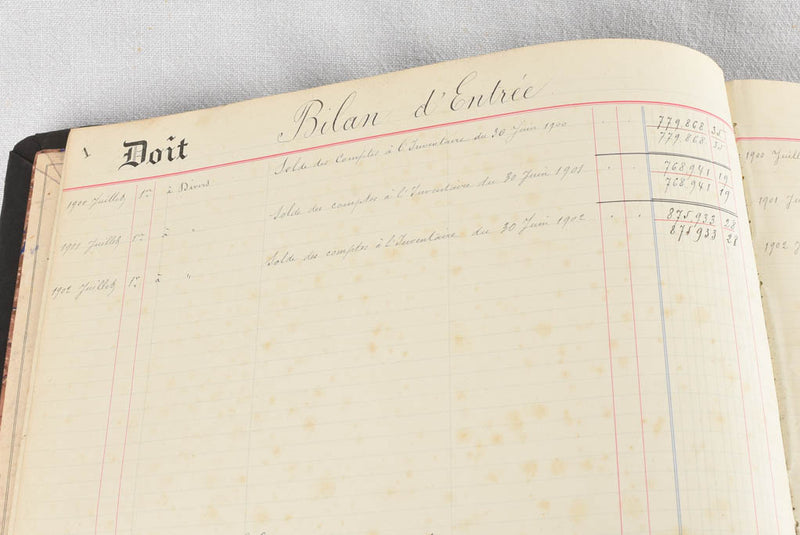 1 Doit Bilan d'Entrée
1900 Juillet 1er à Divers Solde des Comptes à l'Inventaire du 30 Juin 1900 779.868 35
779.868 35
1901 Juillet 1er à " Solde des comptes à l'Inventaire du 30 Juin 1901 768.941 19
768.941 19
1902 Juillet 1er à " Solde des comptes à l'Inventaire du 30 Juin 1902 875.933 28
875.933 28
1900 Juill
1901 Ju
1902 J